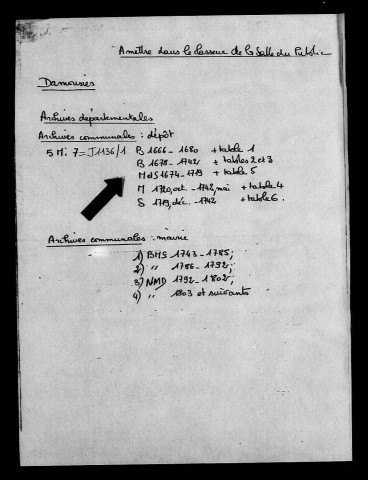 A mettre dans le classeur de la Salle du Public
Damousies
Archives départementales
Archives communales : dépôt
5 Mi 7 = J1136/1 B 1666 - 1680 + table 1
B 1678 - 1742 + tables 2 et 3
M et S 1674 - 1719 + table 5
M 1720, oct. - 1742, mai + table 4
S 1719, déc. - 1742 + table 6.
Archives communales : mairie
1) BMS 1743 - 1785;
2) " 1786 - 1792;
3) NMD 1792 - 1802;
4) " 1803 et suivants